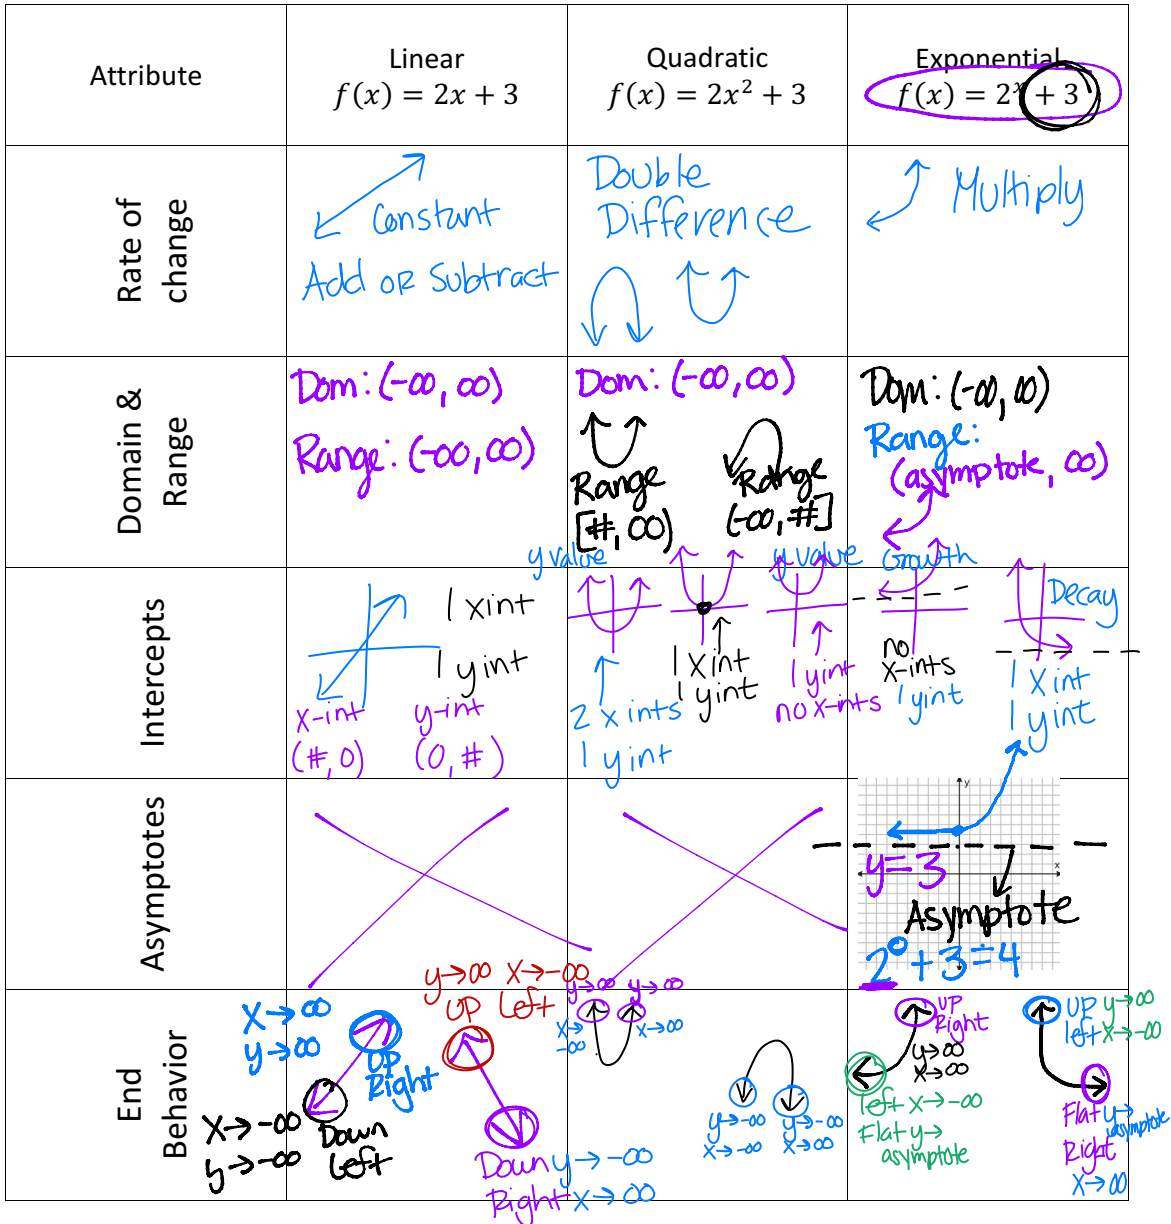 Attribute
Linear
f(x) = 2x + 3
Quadratic
f(x) = 2x² + 3
Exponential
f(x) = 2ˣ + 3
Rate of
change
Constant
Add OR Subtract
Double
Difference
Multiply
Domain &
Range
Dom: (-∞, ∞)
Range: (-∞, ∞)
Dom: (-∞, ∞)
Range
[#, ∞)
y value
Range
(-∞, #]
y value
Dom: (-∞, ∞)
Range:
(asymptote, ∞)
Intercepts
1 x int
1 y int
x-int
(#, 0)
y-int
(0, #)
2 x ints
1 y int
1 x int
1 y int
1 y int
no x-ints
Growth
no
x-ints
1 y int
Decay
1 x int
1 y int
Asymptotes
y
x
y = 3
Asymptote
2⁰ + 3 = 4
End
Behavior
x→∞
y→∞
UP
Right
x→-∞
y→-∞
Down
left
y→∞ x→-∞
UP Left
Down y→-∞
Right x→∞
y→∞ y→∞
x→
-∞
x→∞
y→-∞
x→-∞
y→-∞
x→∞
UP
Right
y→∞
x→∞
left x→-∞
Flat y→
asymptote
UP y→∞
left x→-∞
Flat y→
asymptote
Right
x→∞